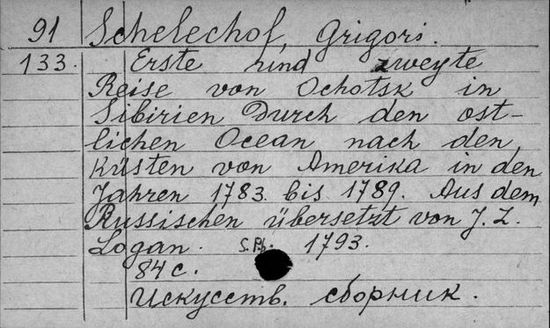 91 Schelechof, Grigori.
133. Erste und zweyte
Reise von Ochotsk in
Sibirien Durch den öst-
lichen Ocean nach den
Küsten von Amerika in den
Jahren 1783. bis 1789. Aus dem
Russischen übersetzt von J. Z.
Logan. S.Pb. 1793.
84 с.
Искусств. сборник.